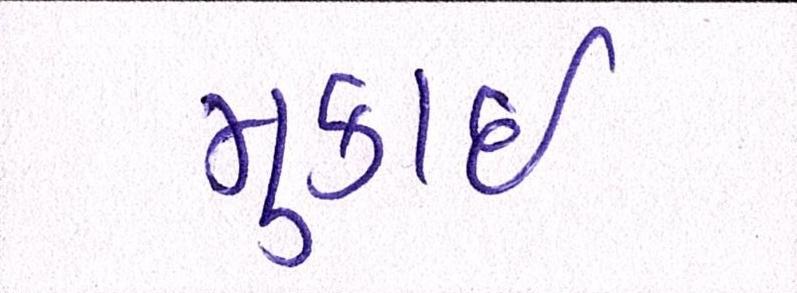 મુકાઈ